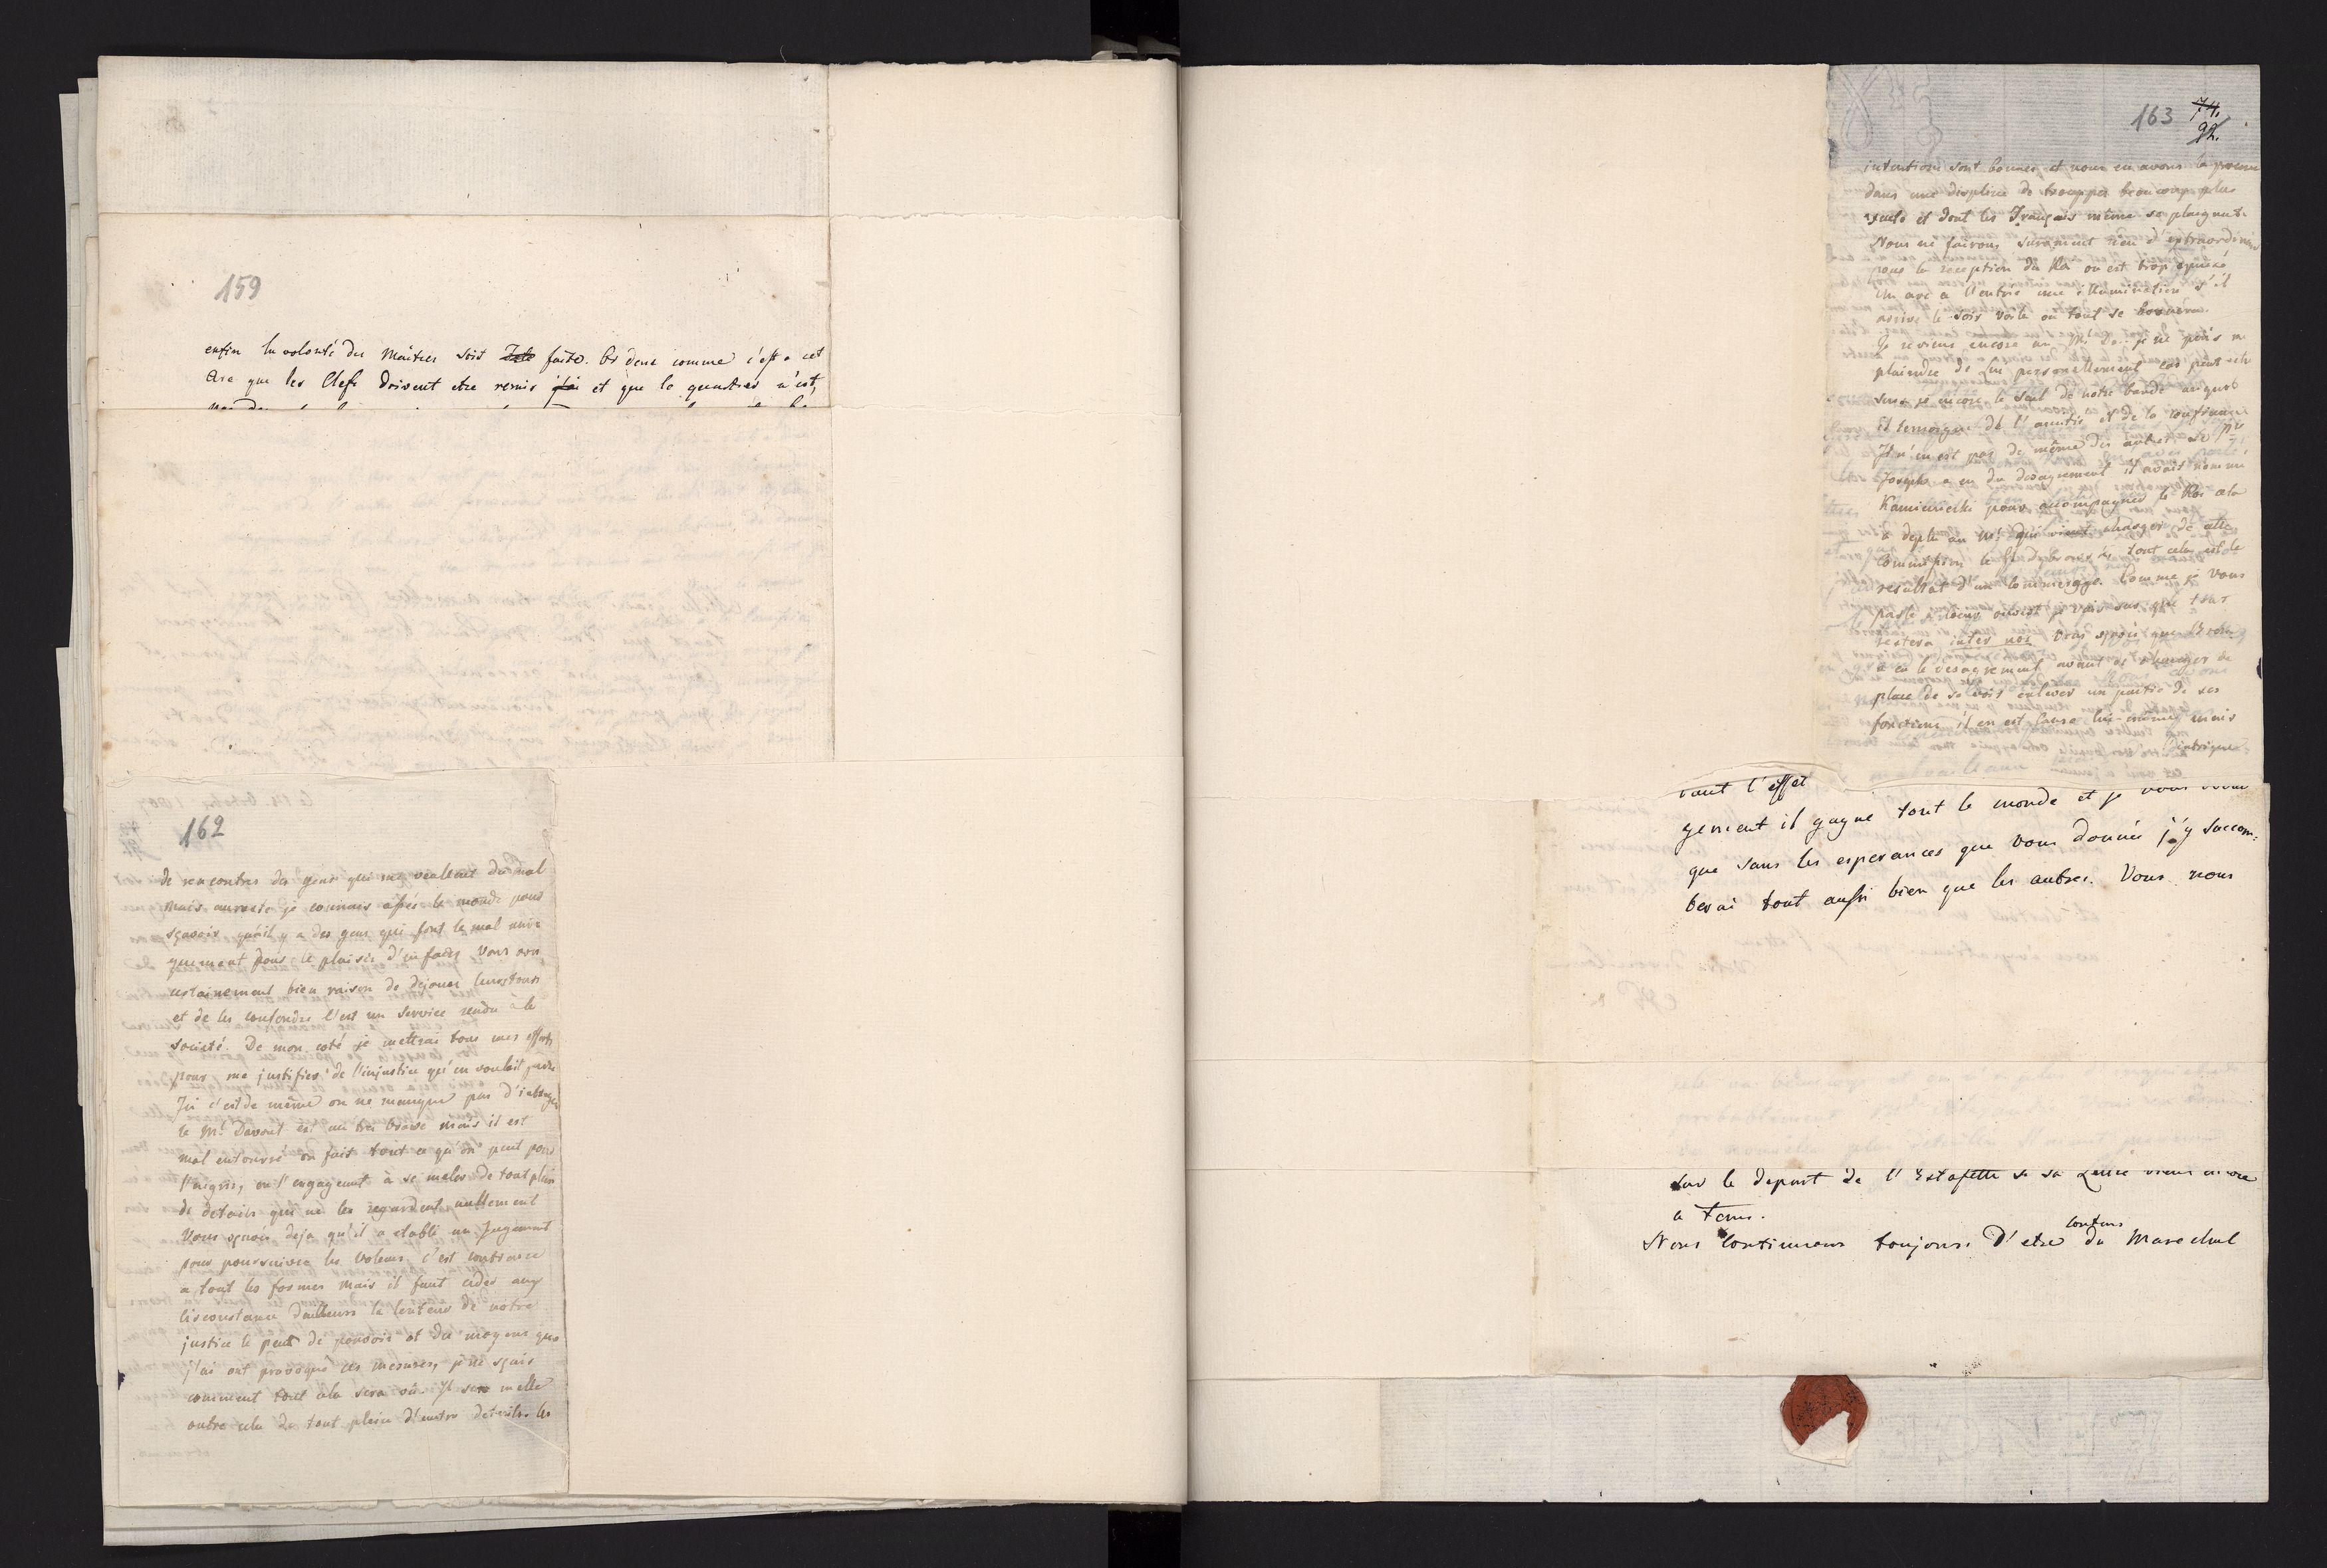 159
enfin la volonté des Maitres soit faite. Or donc comme c'est a cet
Arc que les Clefs doivent etre remis et que le quartier n'est,
162
de rencontrer des gens qui me veulent du mal
mais aureste je connais assés le monde pour
sçavoir qu'il y a des gens qui font le mal uni-
quement pour le plaisir d'en faire, Vous avés
certainement bien raison de dejouer
et de les confondre c'est un service rendu à la
societé. De mon coté je mettrai tous mes efforts
pour me justifier de l'injustice qu'on voulait faire
Ici c'est de même on ne manque pas d'
le Ml Davout est un tres brave mais il est
mal entouré on fait tout ce qu'on peut pour
l'aigrir, on l'engageant à se meler de tout plein
de details qui ne les regardent nullement
Vous sçavés deja qu'il a etabli un Jugement
pour poursuivre les voleurs, c'est contraire
a tout les formes mais il faut ceder aux
circonstance d'ailleurs la lenteur de notre
justice le peut de pouvoir et du moyens que
j'ai ont provoqué ces mesures, je ne sçais
comment tout cela sera vû. Il se melle
outre cela de tout plein d'autre details. les
163 74.
92.
intentions sont bonnes et nous en avons la preuve
dans une displine de trouppes beaucoup plus
exacte et dont les Français même se plaignent.
Nous ne fairons surement rien d'extraordinaire
pour la reception du Roi on est trop epuisé
Un arc a l'entrée une illumination s'il
arrive le soir voila ou tout se bornera.
Je reviens encore au Ml Da. je ne puis m
plaindre de Lui personellement car peut etre
suis je encore le seul de notre bande auquel
il temoigne de l'amitie et de la confiance
Il n'en est pas de même des autres Le Pce
Joseph a eu du desagrement il avait nommé
Kamieniecki pour accompagner le Roi cela
a deplu au Ml qui vient charger de cette
Commission le Gl Dabrowski, tout cela est le
resultat d'un commerage. Comme je Vous
parle a coeur ouvert je suis sur que tout
restera inter nos Vous sçavés que
a eu le desagrement avant de changer de
place de se voir enlever un partie de ses
fonctions il en est cause lui-même mais
l'intrigue
vant l'effet
gement il gagne tout le monde et je vous
que sans les esperances que vous donnés j'y succom-
berai tout aussi bien que les autres. Vous nous
sur le depart de l'Estafette si sa Lettre vient encore
a tems.
contens
Nous continuons toujours d'etre du Marechal